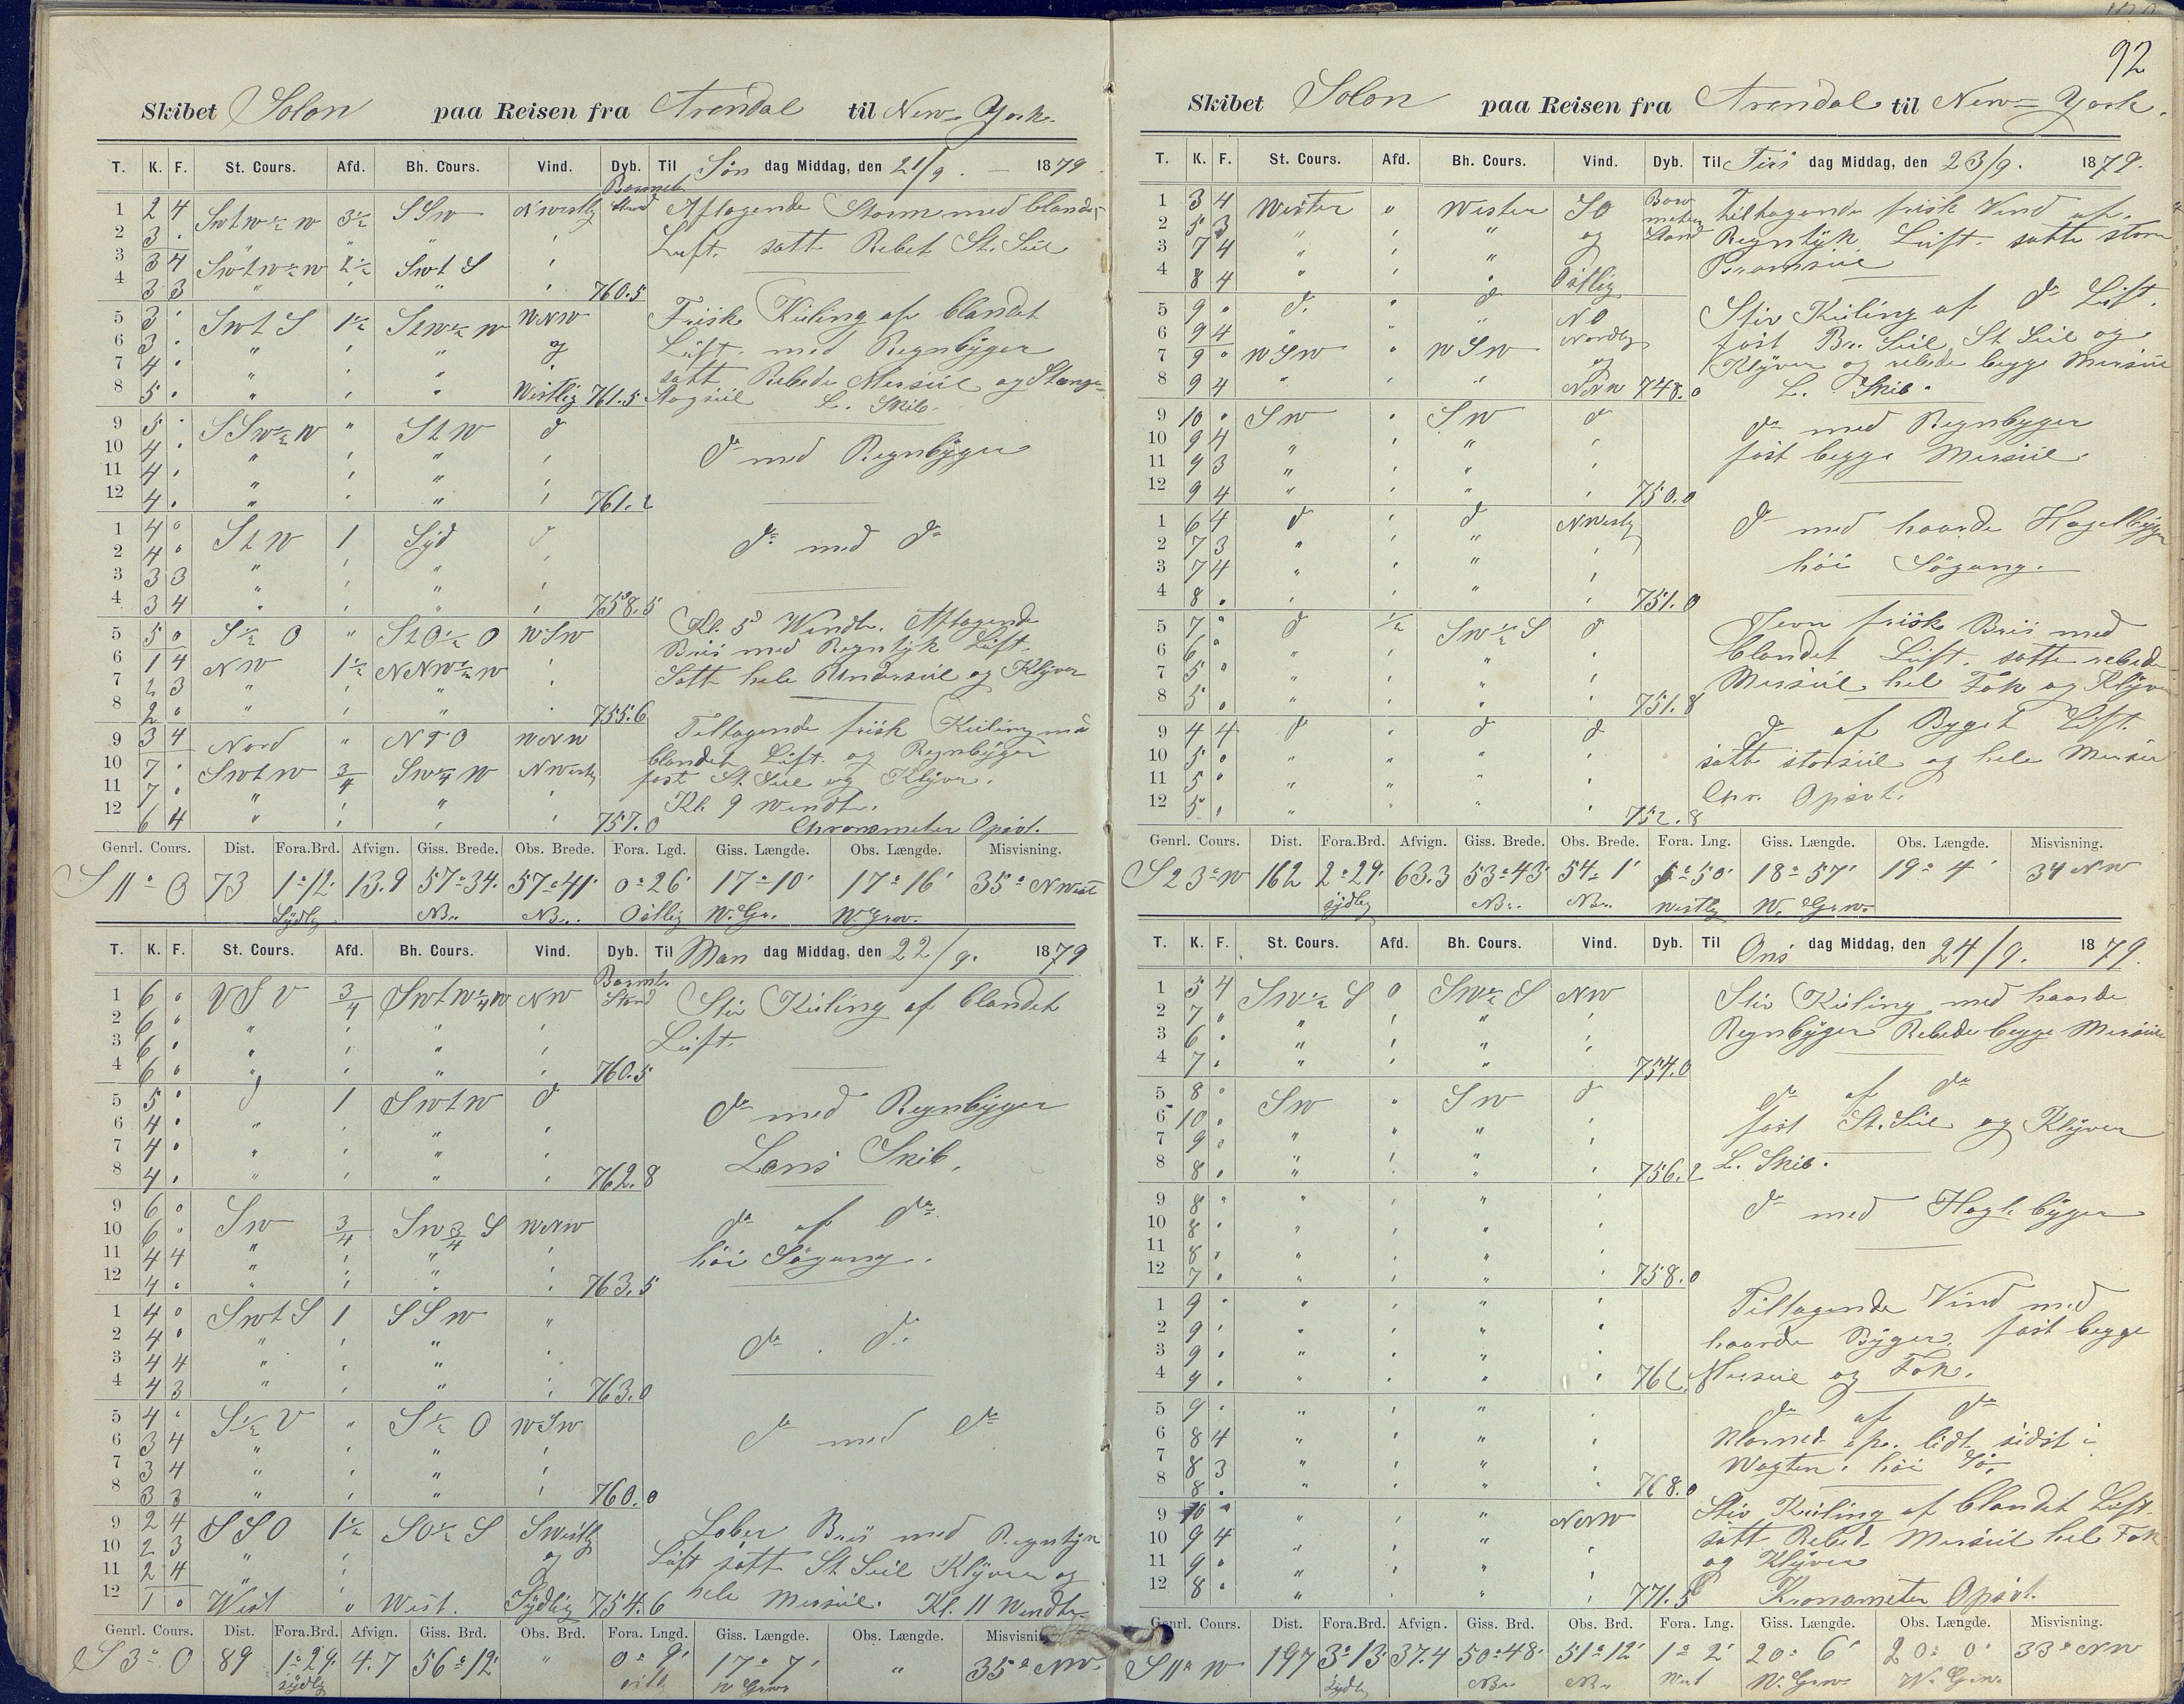 Skibet Solon paa Reisen fra Arendal til New-York.
T. K. F. St. Cours. Afd. Bh. Cours. Vind. Dyb. Til Søn dag Middag, den 21/9. - 1879
1 2 4 Swtw½w 3½ SSw Nwestlig Aftagende Storm med blandet
2 3 . " " " Luft. satte Rebet St. Seil
3 3 4 Swtw½w 2½ Swt S
4 3 3 " " " 760.5
5 3 . Swt S 1½ Stw½w WNW Frisk Kuling af blandet
6 3 . " " " og Luft. med Regnbyger
7 4 . " " " satte Rebede Mersseil og Stænge-
8 5 . " " " Westlig 761.5 Stagseil L. Skib.
9 5 . SSw½w " StW d
10 4 . " " " do med Regnbyger
11 4 . " " "
12 4 . " " " 761.2
1 4 0 StW 1 Syd d
2 4 0 " " " do med do
3 3 3 " " "
4 3 4 " " " 758.5
5 5 0 S½ O " StO½ O WSW Kl. 5 Wendte. Aftagende
6 1 4 NW 1½ NNW½W Bris med Regntyk Luft.
7 2 3 " " " Satte hele Underseil og Klyver
8 2 0 " " " 755.6
9 3 4 Nord " NTO WNW Tiltagende frisk Kuling med
10 7 . Swtw 3/4 Sw¼ W NWestlig blandet Luft og Regnbyger
11 7 . " " " fast St. Seil og Klyver.
12 6 4 " " " 757.0 Kl. 9 wendte.
Chronometer Opsat.
Genrl. Cours. Dist. Fora.Brd. Afvign. Giss. Brede. Obs. Brede. Fora. Lgd. Giss. Længde. Obs. Længde. Misvisning.
S 11° O 73 1°12' 13.9 57°34' 57°41' 0°26' 17°10' 17°16' 35° NWest
Sydlig N.Br. N.Br. Østlig W. Gr. W. Grw.
T. K. F. St. Cours. Afd. Bh. Cours. Vind. Dyb. Til Man dag Middag, den 22/9. 1879
1 6 0 VSV 3/4 Swtw¼w NW Stiv Kuling af blandet
2 6 0 " " " Luft.
3 6 . " " "
4 6 0 " " " 760.5
5 5 . d 1 Swtw d do med Regnbyger
6 4 . " " "
7 4 . " " " Lens Skib.
8 4 . " " " 762.8
9 6 0 Sw 3/4 Sw 3/4 S WNW do af do
10 6 . " " " høi Søgang.
11 4 4 " " "
12 4 . " " " 763.5
1 4 0 SwtS 1 SSw "
2 4 0 " " " do . do
3 4 4 " " "
4 4 3 " " " 763.0
5 4 . S½ V " S½ O WSW
6 3 4 " " " do med do
7 3 4 " " "
8 3 3 " " " 760.0
9 2 4 SSO 1½ SO½ S SWestlig Laber Bris med Regntyk
10 2 3 " " " og Luft satte St. Seil Klyver og
11 2 4 " " " hele Mersseil. Kl. 11 Wendte.
12 1 0 West " West. Sydlig 754.6
Genrl. Cours. Dist. Fora.Brd. Afvign. Giss. Brd. Obs. Brd. Fora. Lngd. Giss. Længde. Obs. Længde. Misvisning
S 3° O 89 1°29' 4.7 56°12' " 0°9' 17°7' " 35° NW.
sydlig W Grw
92
Skibet Solon paa Reisen fra Arendal til New-York.
T. K. F. St. Cours. Afd. Bh. Cours. Vind. Dyb. Til Tirs dag Middag, den 23/9. 1879.
1 3 4 Wester 0 Wester SO Tiltagende frisk Vind af
2 5 3 " " " og Regntyk Luft. satte store
3 7 4 " " " Bramseil
4 8 4 " " " Østlig
5 9 . d. " d NO Stiv Kuling af do Luft.
6 9 4 " " " Nordlig fast Br. Seil, St Seil og
7 9 0 WSW " WSW og Klyver og rebede begge Mersseil
8 9 4 " " " NNW 748.0 L. Skib.
9 10 . SW " SW d do med Regnbyger
10 9 4 " " " fast begge Mersseil.
11 9 3 " " "
12 9 4 " " " 750.0
1 6 4 d d NWestlig do med haarde Hagelbyger
2 7 3 " " "
3 7 4 " " " høi Søgang.
4 8 . " " " 751.0
5 7 . d ½ Sw½S d Jevn frisk Bris med
6 6 . " " " blandet Luft. satte rebede
7 5 . " " " Mersseil hel Fok og Klyver
8 5 . " " " 751.8
9 4 4 d " d d do af Byget Luft.
10 5 . " " " satte storseil og hele Mersseil
11 5 . " " " Chr. Opsat.
12 5 . " " " 752.8
Genrl. Cours. Dist. Fora.Brd. Afvign. Giss. Brede. Obs. Brede. Fora. Lng. Giss. Længde. Obs. Længde. Misvisning.
S 23° W 162 2°29' 63.3 53°43' 54° 1' 1°50' 18°57' 19° 4' 34 NW
sydlig N.Br. N.Br. westlig W. Grw.
T. K. F. St. Cours. Afd. Bh. Cours. Vind. Dyb. Til Ons dag Middag, den 24/9. 1879.
1 5 4 SW½ S 0 SW½ S NW Stiv Kuling med haarde
2 7 . " " " Regnbyger Rebede begge Mersseil
3 6 . " " "
4 7 . " " " 754.0
5 8 . SW " SW d do af do
6 10 . fast St. Seil og Klyver
7 9 0 " " "
8 8 . " " " 756.2 L. Skib.
9 8 . " " " do med Hagl byger
10 8 . " " "
11 8 . " " "
12 7 . " " " 758.0
1 9 . " " " Tiltagende Vind med
2 9 . " " " haarde Byger. fast begge
3 9 . " " " Mersseil og Fok.
4 9 . " " "
5 9 . " " " do af do
6 8 4 " " " lidt sidst i
7 8 3 " " " Wagten. høi Sø.
8 8 . " " " 768.0
9 10 . " " NNW Stiv Kuling af blandet Luft.
10 9 4 " " " satte Rebed. Mersseil hele Fok
11 9 . " " " og Klyver
12 8 . " " " 771.5 Kronometer Opsat.
Genrl. Cours. Dist. Fora.Brd. Afvign. Giss. Brd. Obs. Brd. Fora. Lng. Giss. Længde. Obs. Længde. Misvisning.
S 11° W 197 3°13' 37.4 50°48' 51°12' 1° 2' 20° 6' 20° 0' 33° NW
Sydlig N.Br. N.Br. West W. Grw. W. Grw.